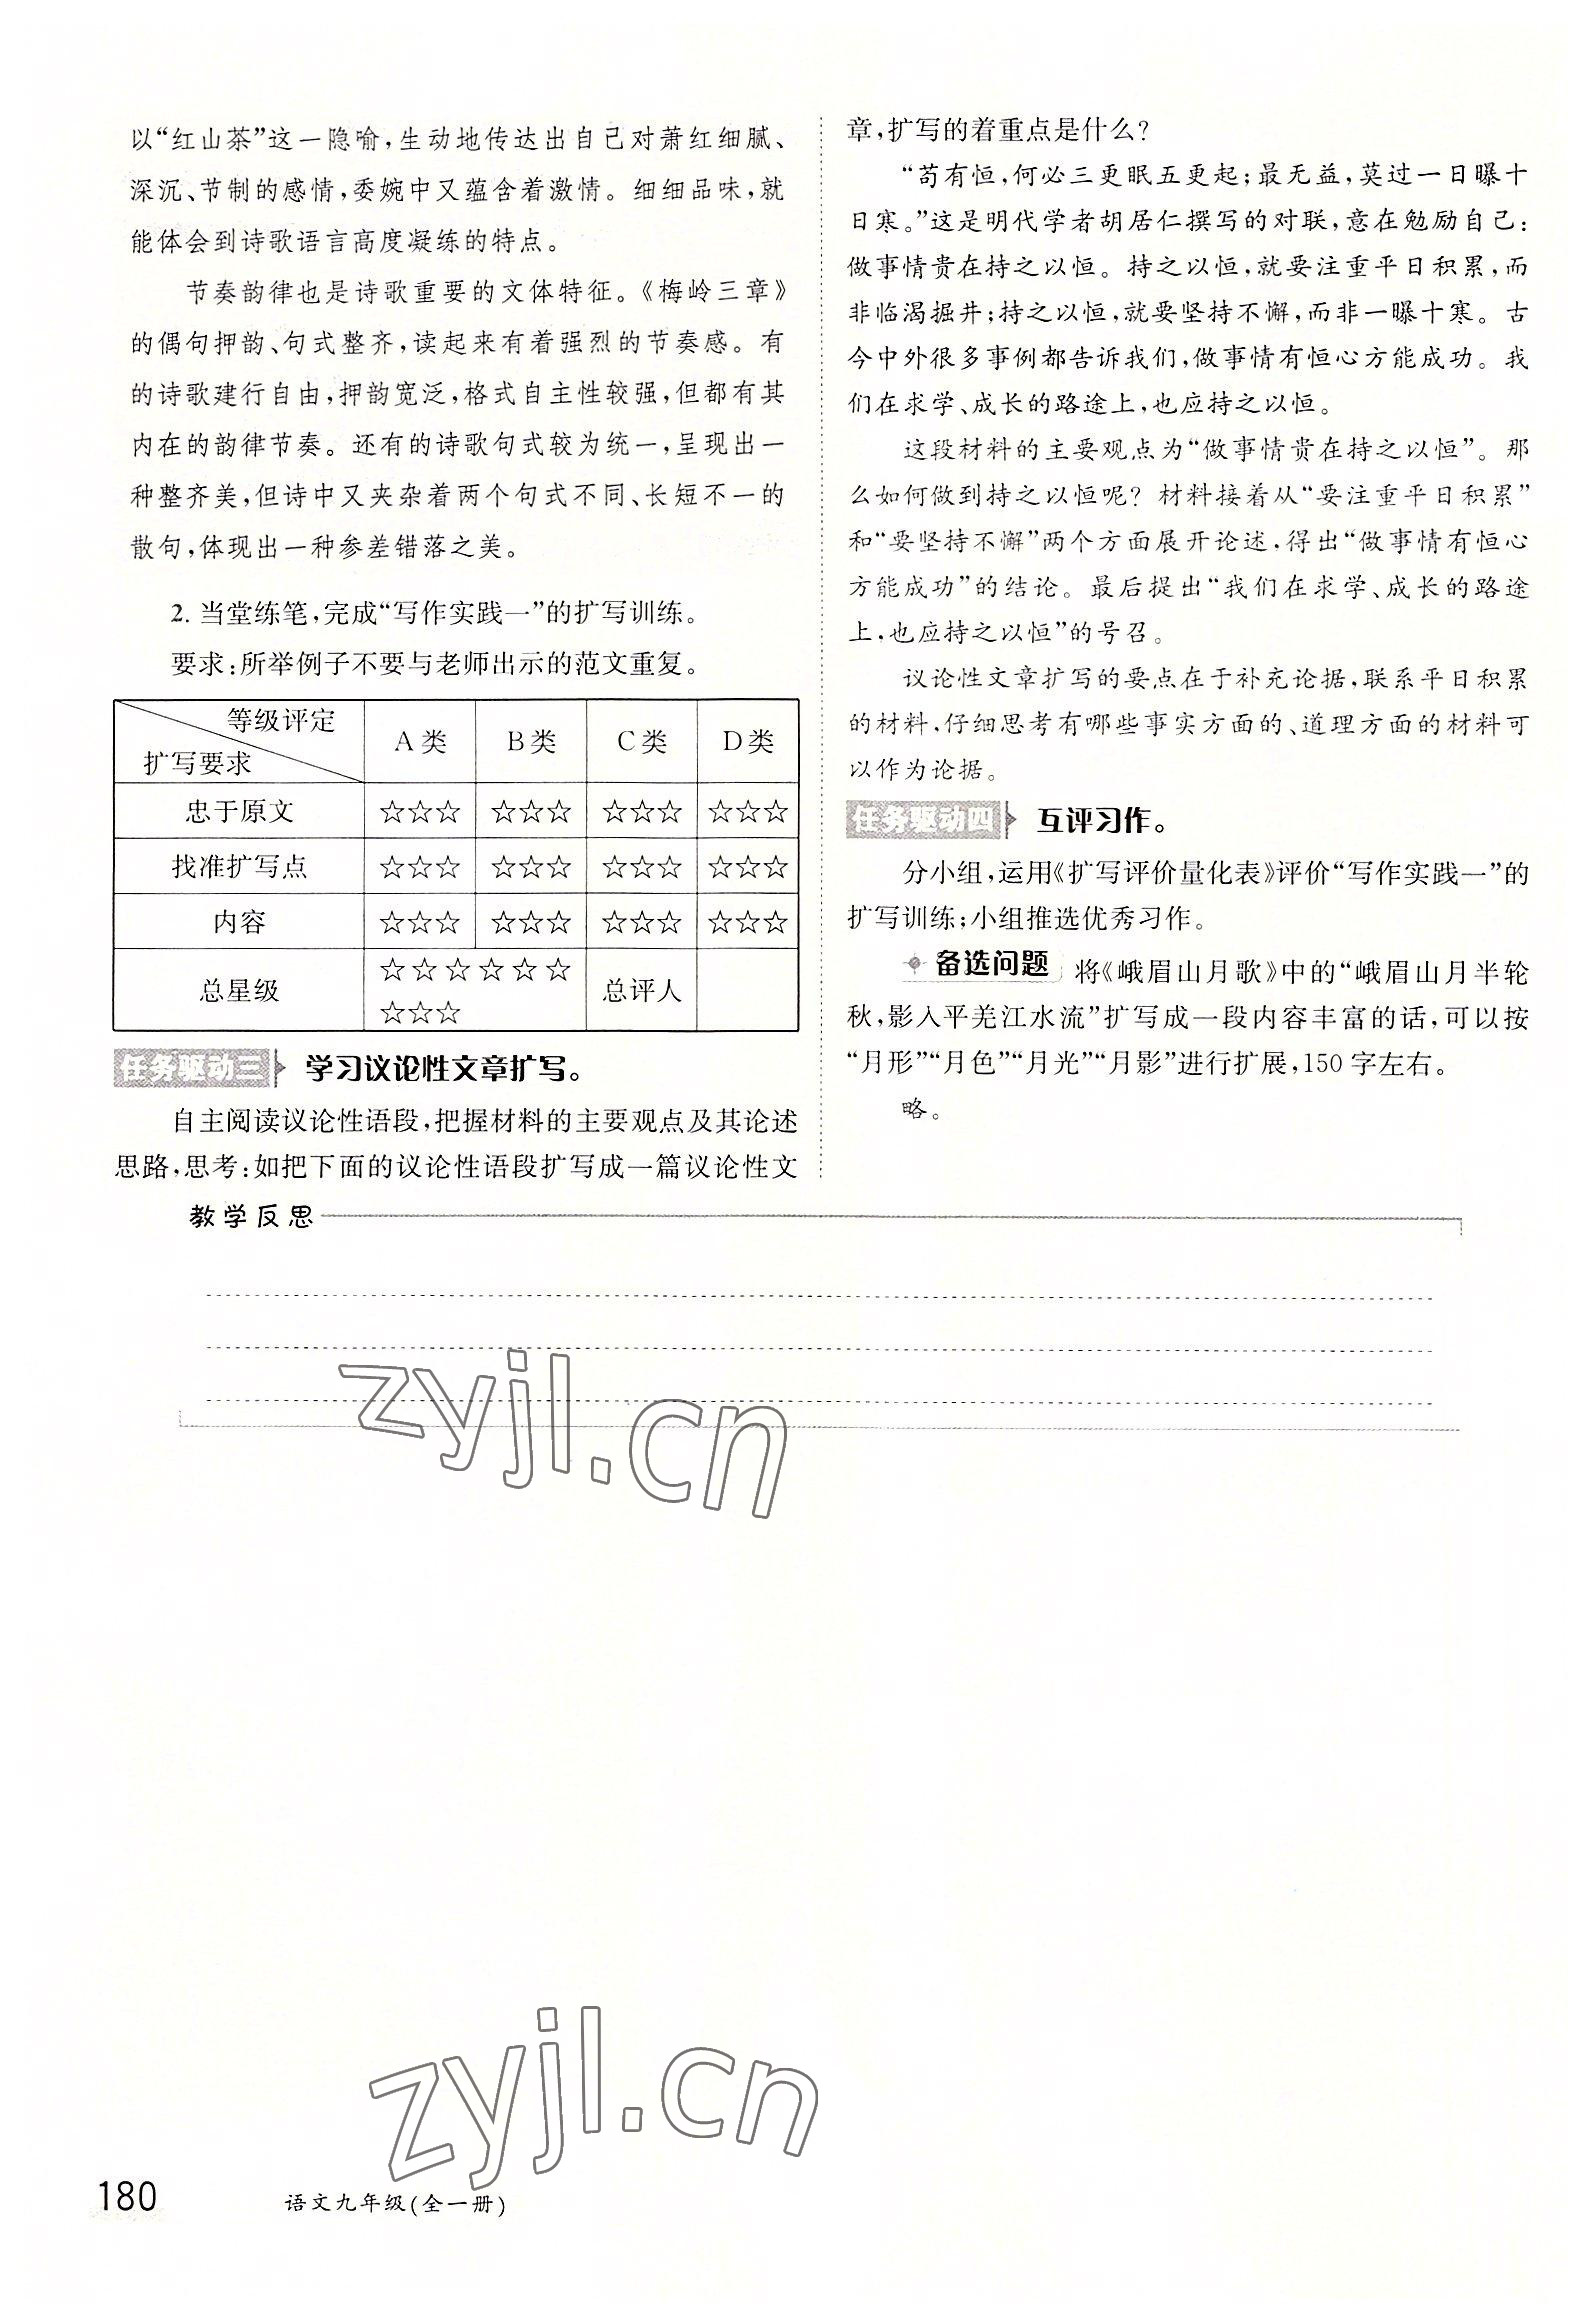 以“红山茶”这一隐喻，生动地传达出自己对萧红细腻、
深沉、节制的感情，委婉中又蕴含着激情。细细品味，就
能体会到诗歌语言高度凝练的特点。
节奏韵律也是诗歌重要的文体特征。《梅岭三章》
的偶句押韵、句式整齐，读起来有着强烈的节奏感。有
的诗歌建行自由，押韵宽泛，格式自主性较强，但都有其
内在的韵律节奏。还有的诗歌句式较为统一，呈现出一
种整齐美，但诗中又夹杂着两个句式不同、长短不一的
散句，体现出一种参差错落之美。
2. 当堂练笔，完成“写作实践一”的扩写训练。
要求：所举例子不要与老师出示的范文重复。
等级评定
扩写要求
A 类 B 类 C 类 D 类
忠于原文 ☆☆☆ ☆☆☆ ☆☆☆ ☆☆☆
找准扩写点 ☆☆☆ ☆☆☆ ☆☆☆ ☆☆☆
内容 ☆☆☆ ☆☆☆ ☆☆☆ ☆☆☆
总星级 ☆☆☆☆☆☆ 总评人
☆☆☆
任务驱动三 学习议论性文章扩写。
自主阅读议论性语段，把握材料的主要观点及其论述
思路，思考：如把下面的议论性语段扩写成一篇议论性文
章，扩写的着重点是什么？
“苟有恒，何必三更眠五更起；最无益，莫过一日曝十
日寒。”这是明代学者胡居仁撰写的对联，意在勉励自己：
做事情贵在持之以恒。持之以恒，就要注重平日积累，而
非临渴掘井；持之以恒，就要坚持不懈，而非一曝十寒。古
今中外很多事例都告诉我们，做事情有恒心方能成功。我
们在求学、成长的路途上，也应持之以恒。
这段材料的主要观点为“做事情贵在持之以恒”。那
么如何做到持之以恒呢？材料接着从“要注重平日积累”
和“要坚持不懈”两个方面展开论述，得出“做事情有恒心
方能成功”的结论。最后提出“我们在求学、成长的路途
上，也应持之以恒”的号召。
议论性文章扩写的要点在于补充论据，联系平日积累
的材料，仔细思考有哪些事实方面的、道理方面的材料可
以作为论据。
任务驱动四 互评习作。
分小组，运用《扩写评价量化表》评价“写作实践一”的
扩写训练；小组推选优秀习作。
备选问题 将《峨眉山月歌》中的“峨眉山月半轮
秋，影入平羌江水流”扩写成一段内容丰富的话，可以按
“月形”“月色”“月光”“月影”进行扩展，150 字左右。
略。
教学反思
zyjl.cn
zyjl.cn
180
语文九年级(全一册)